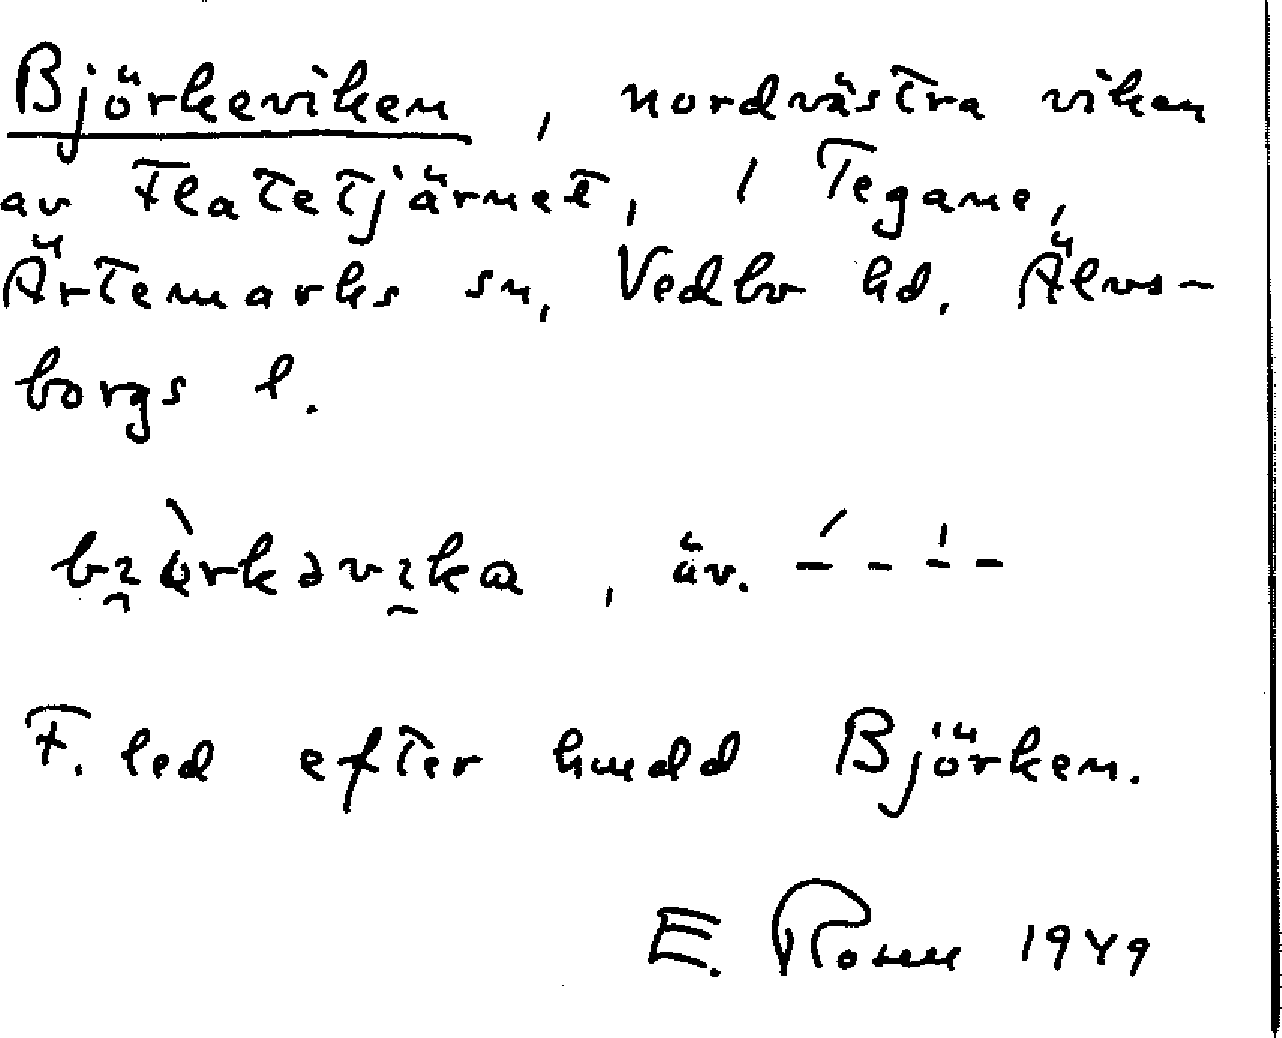 Björkeviken, nordvästra viken
av Flatetjärnet, i Tegane,
Ärtemarks sn, Vedbo hd. Älvs-
borgs l.
äv. – – – –
F. led efter hmdd Björken.
E. 1949